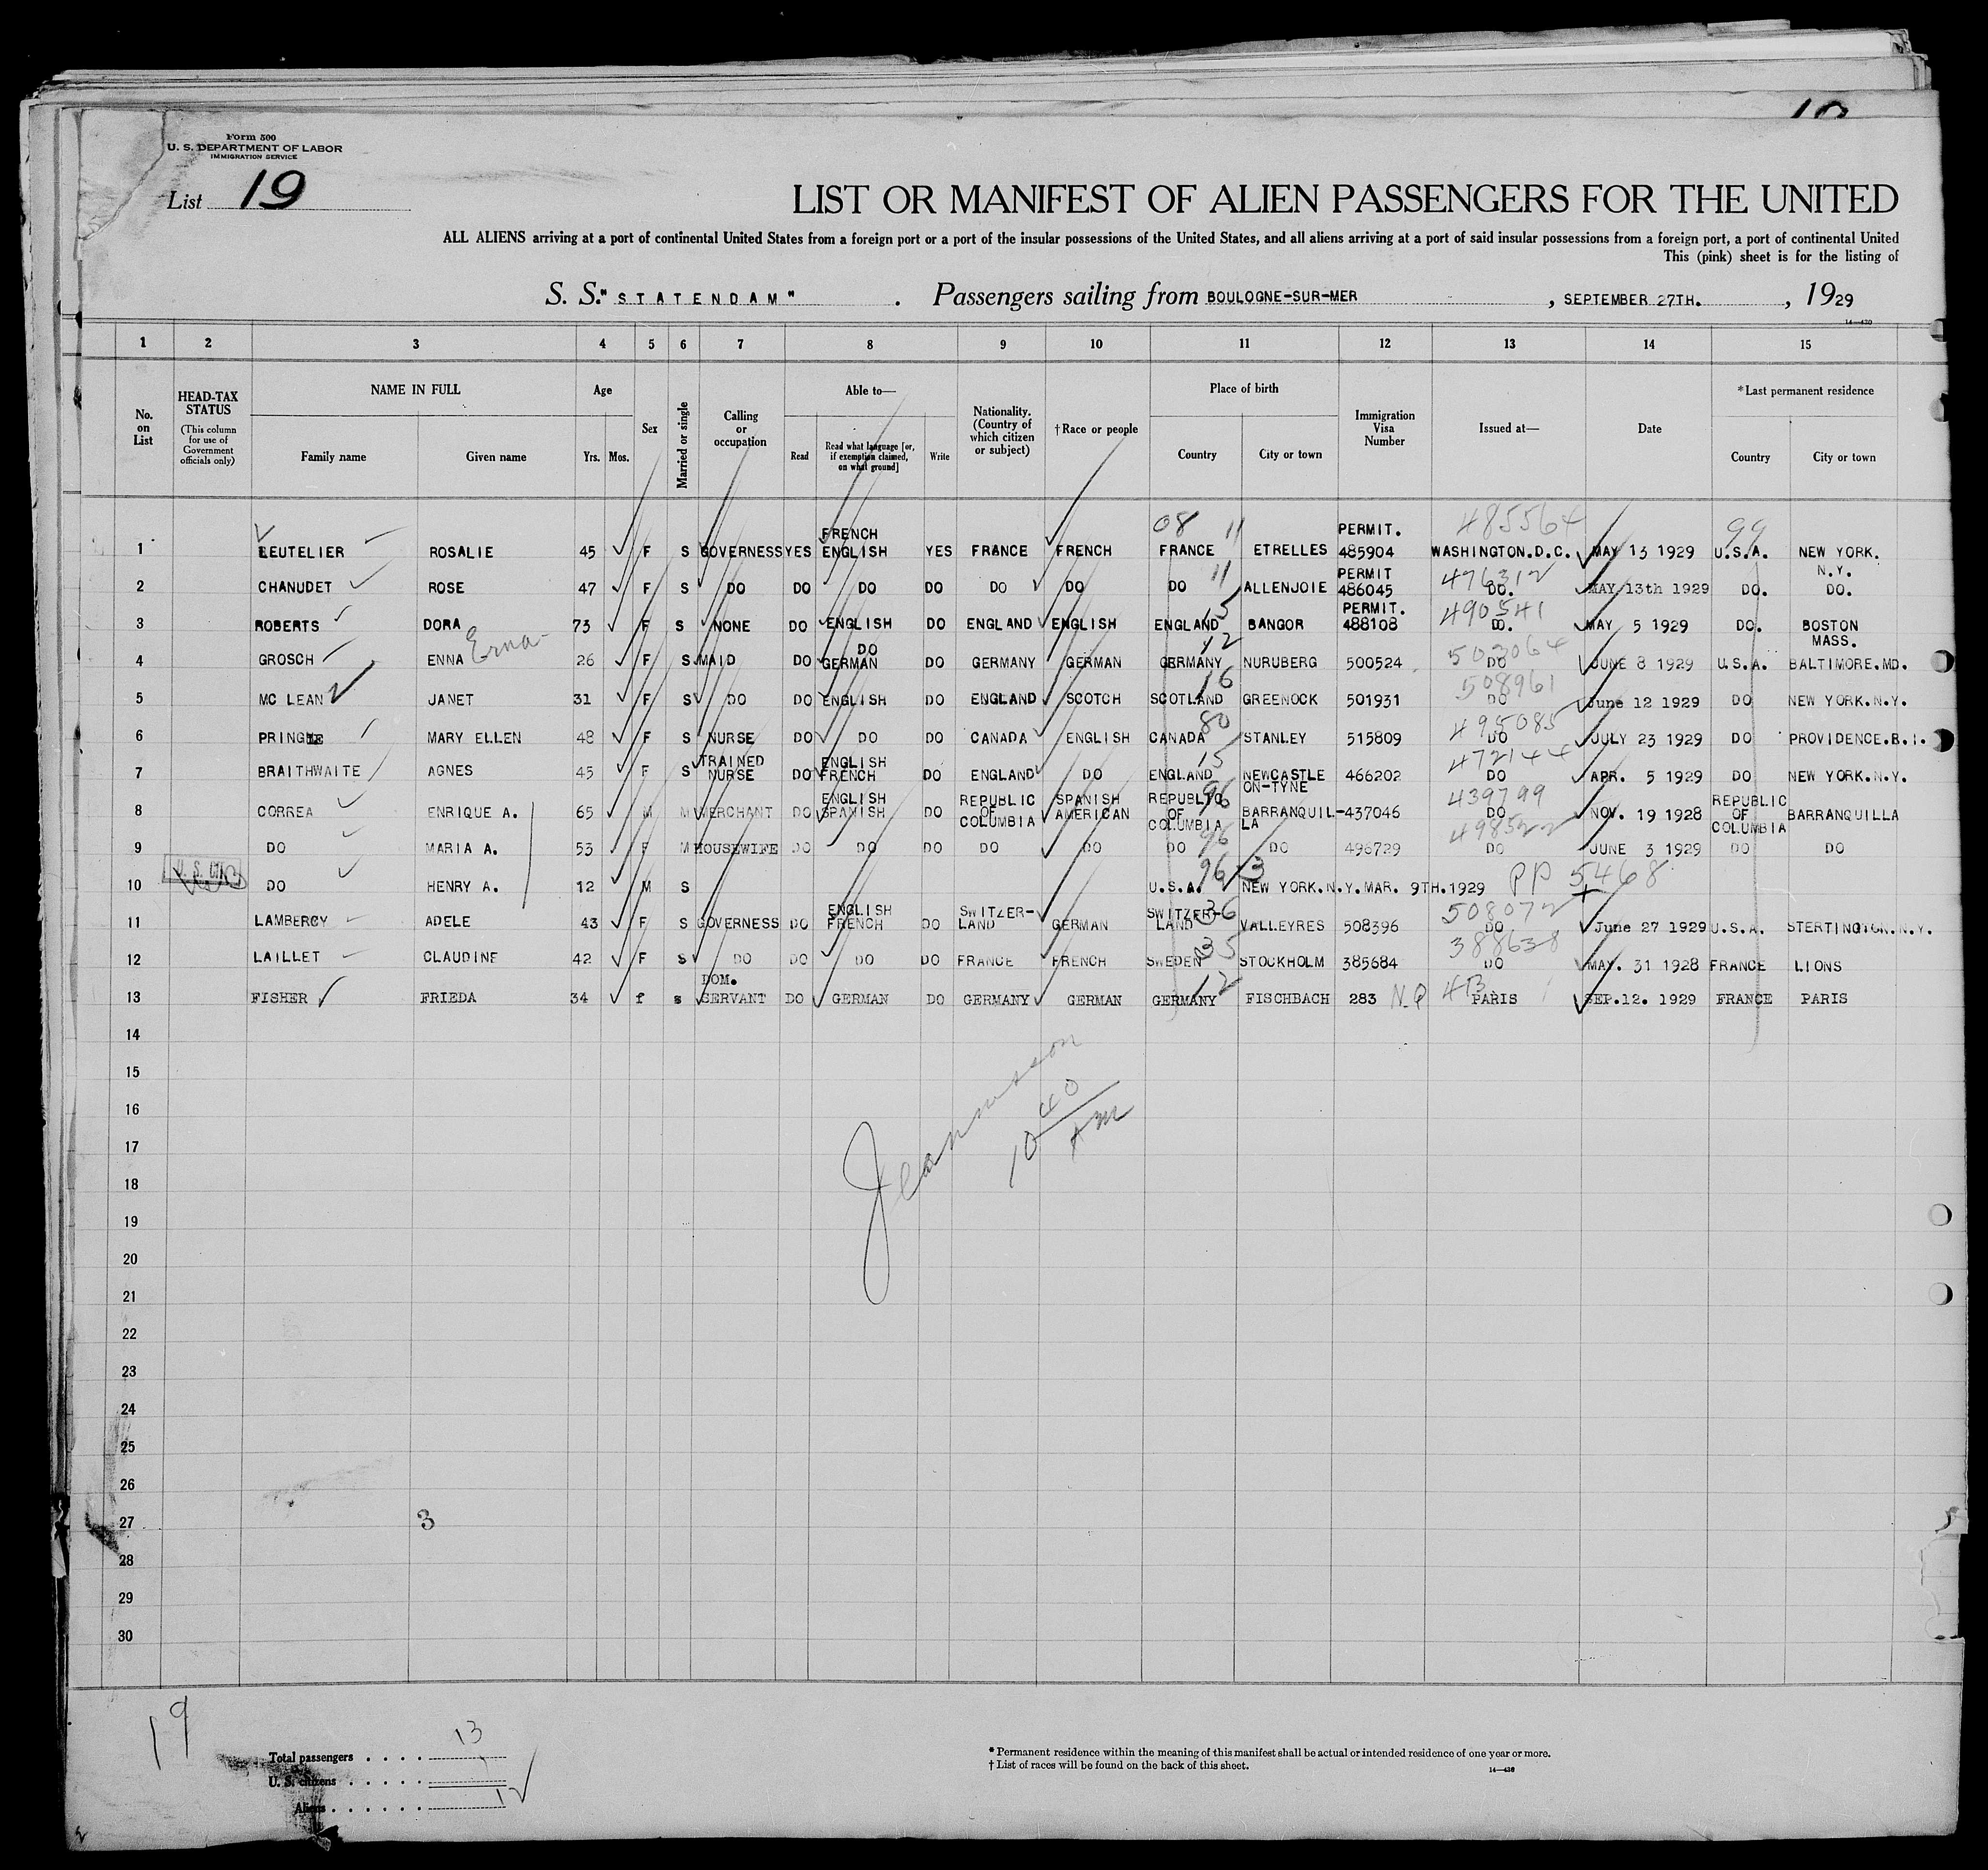 Form 500
U. S. DEPARTMENT OF LABOR
IMMIGRATION SERVICE
List 19
LIST OR MANIFEST OF ALIEN PASSENGERS FOR THE UNITED
ALL ALIENS arriving at a port of continental United States from a foreign port or a port of the insular possessions of the United States, and all aliens arriving at a port of said insular possessions from a foreign port, a port of continental United
This (pink) sheet is for the listing of
S. S. "STATENDAM" . Passengers sailing from BOULOGNE-SUR-MER , SEPTEMBER 27TH. , 1929
14—430
1 2 3 4 5 6 7 8 9 10 11 12 13 14 15
No. on List
HEAD-TAX STATUS (This column for use of Government officials only)
NAME IN FULL
Family name Given name
Age
Yrs. Mos.
Sex
Married or single
Calling or occupation
Able to—
Read Read what language [or, if exemption claimed, on what ground] Write
Nationality. (Country of which citizen or subject)
†Race or people
Place of birth
Country City or town
Immigration Visa Number
Issued at—
Date
*Last permanent residence
Country City or town
FRENCH 08 11 PERMIT. 485564 99
1 LEUTELIER ROSALIE 45 F S GOVERNESS YES ENGLISH YES FRANCE FRENCH FRANCE ETRELLES 485904 WASHINGTON.D.C. MAY 13 1929 U.S.A. NEW YORK.
11 PERMIT 476312 N.Y.
2 CHANUDET ROSE 47 F S DO DO DO DO DO DO DO ALLENJOIE 486045 DO. MAY 13th 1929 DO. DO.
15 PERMIT. 490541
3 ROBERTS DORA 73 F S NONE DO ENGLISH DO ENGLAND ENGLISH ENGLAND BANGOR 488108 DO. MAY 5 1929 DO. BOSTON
Erna DO 12 503064 MASS.
4 GROSCH ENNA 26 F S MAID DO GERMAN DO GERMANY GERMAN GERMANY NURUBERG 500524 DO JUNE 8 1929 U.S.A. BALTIMORE.MD.
16 508961
5 MC LEAN JANET 31 F S DO DO ENGLISH DO ENGLAND SCOTCH SCOTLAND GREENOCK 501931 DO June 12 1929 DO NEW YORK.N.Y.
80 495085
6 PRINGLE MARY ELLEN 48 F S NURSE DO DO DO CANADA ENGLISH CANADA STANLEY 515809 DO JULY 23 1929 DO PROVIDENCE.R.I.
TRAINED ENGLISH 15 472144
7 BRAITHWAITE AGNES 45 F S NURSE DO FRENCH DO ENGLAND DO ENGLAND NEWCASTLE ON-TYNE 466202 DO APR. 5 1929 DO NEW YORK.N.Y.
ENGLISH REPUBLIC SPANISH REPUBLIC 96 439799 REPUBLIC
8 CORREA ENRIQUE A. 65 M M MERCHANT DO SPANISH DO OF COLUMBIA AMERICAN OF COLUMBIA BARRANQUIL-LA 437046 DO NOV. 19 1928 OF COLUMBIA BARRANQUILLA
96 498522
9 DO MARIA A. 53 F M HOUSEWIFE DO DO DO DO DO DO DO 496729 DO JUNE 3 1929 DO DO
96 3 PP 5468
10 DO HENRY A. 12 M S U.S.A. NEW YORK.N.Y. MAR. 9TH.1929
ENGLISH SWITZER- SWITZER- 36 508072
11 LAMBERCY ADELE 43 F S GOVERNESS DO FRENCH DO LAND GERMAN LAND VALLEYRES 508396 DO June 27 1929 U.S.A. STERTINGTON.N.Y.
35 388638
12 LAILLET CLAUDINE 42 F S DO DO DO DO FRANCE FRENCH SWEDEN STOCKHOLM 385684 DO MAY. 31 1928 FRANCE LIONS
DOM. 12 413
13 FISHER FRIEDA 34 f s SERVANT DO GERMAN DO GERMANY GERMAN GERMANY FISCHBACH 283 N.Q PARIS SEP.12. 1929 FRANCE PARIS
14
15
16
17
18
19
20
21
22
23
24
25
26
27
28
29
30
10 40 AM
3
19
Total passengers 13
U. S. citizens 1
Aliens 12
*Permanent residence within the meaning of this manifest shall be actual or intended residence of one year or more.
†List of races will be found on the back of this sheet.
14—430